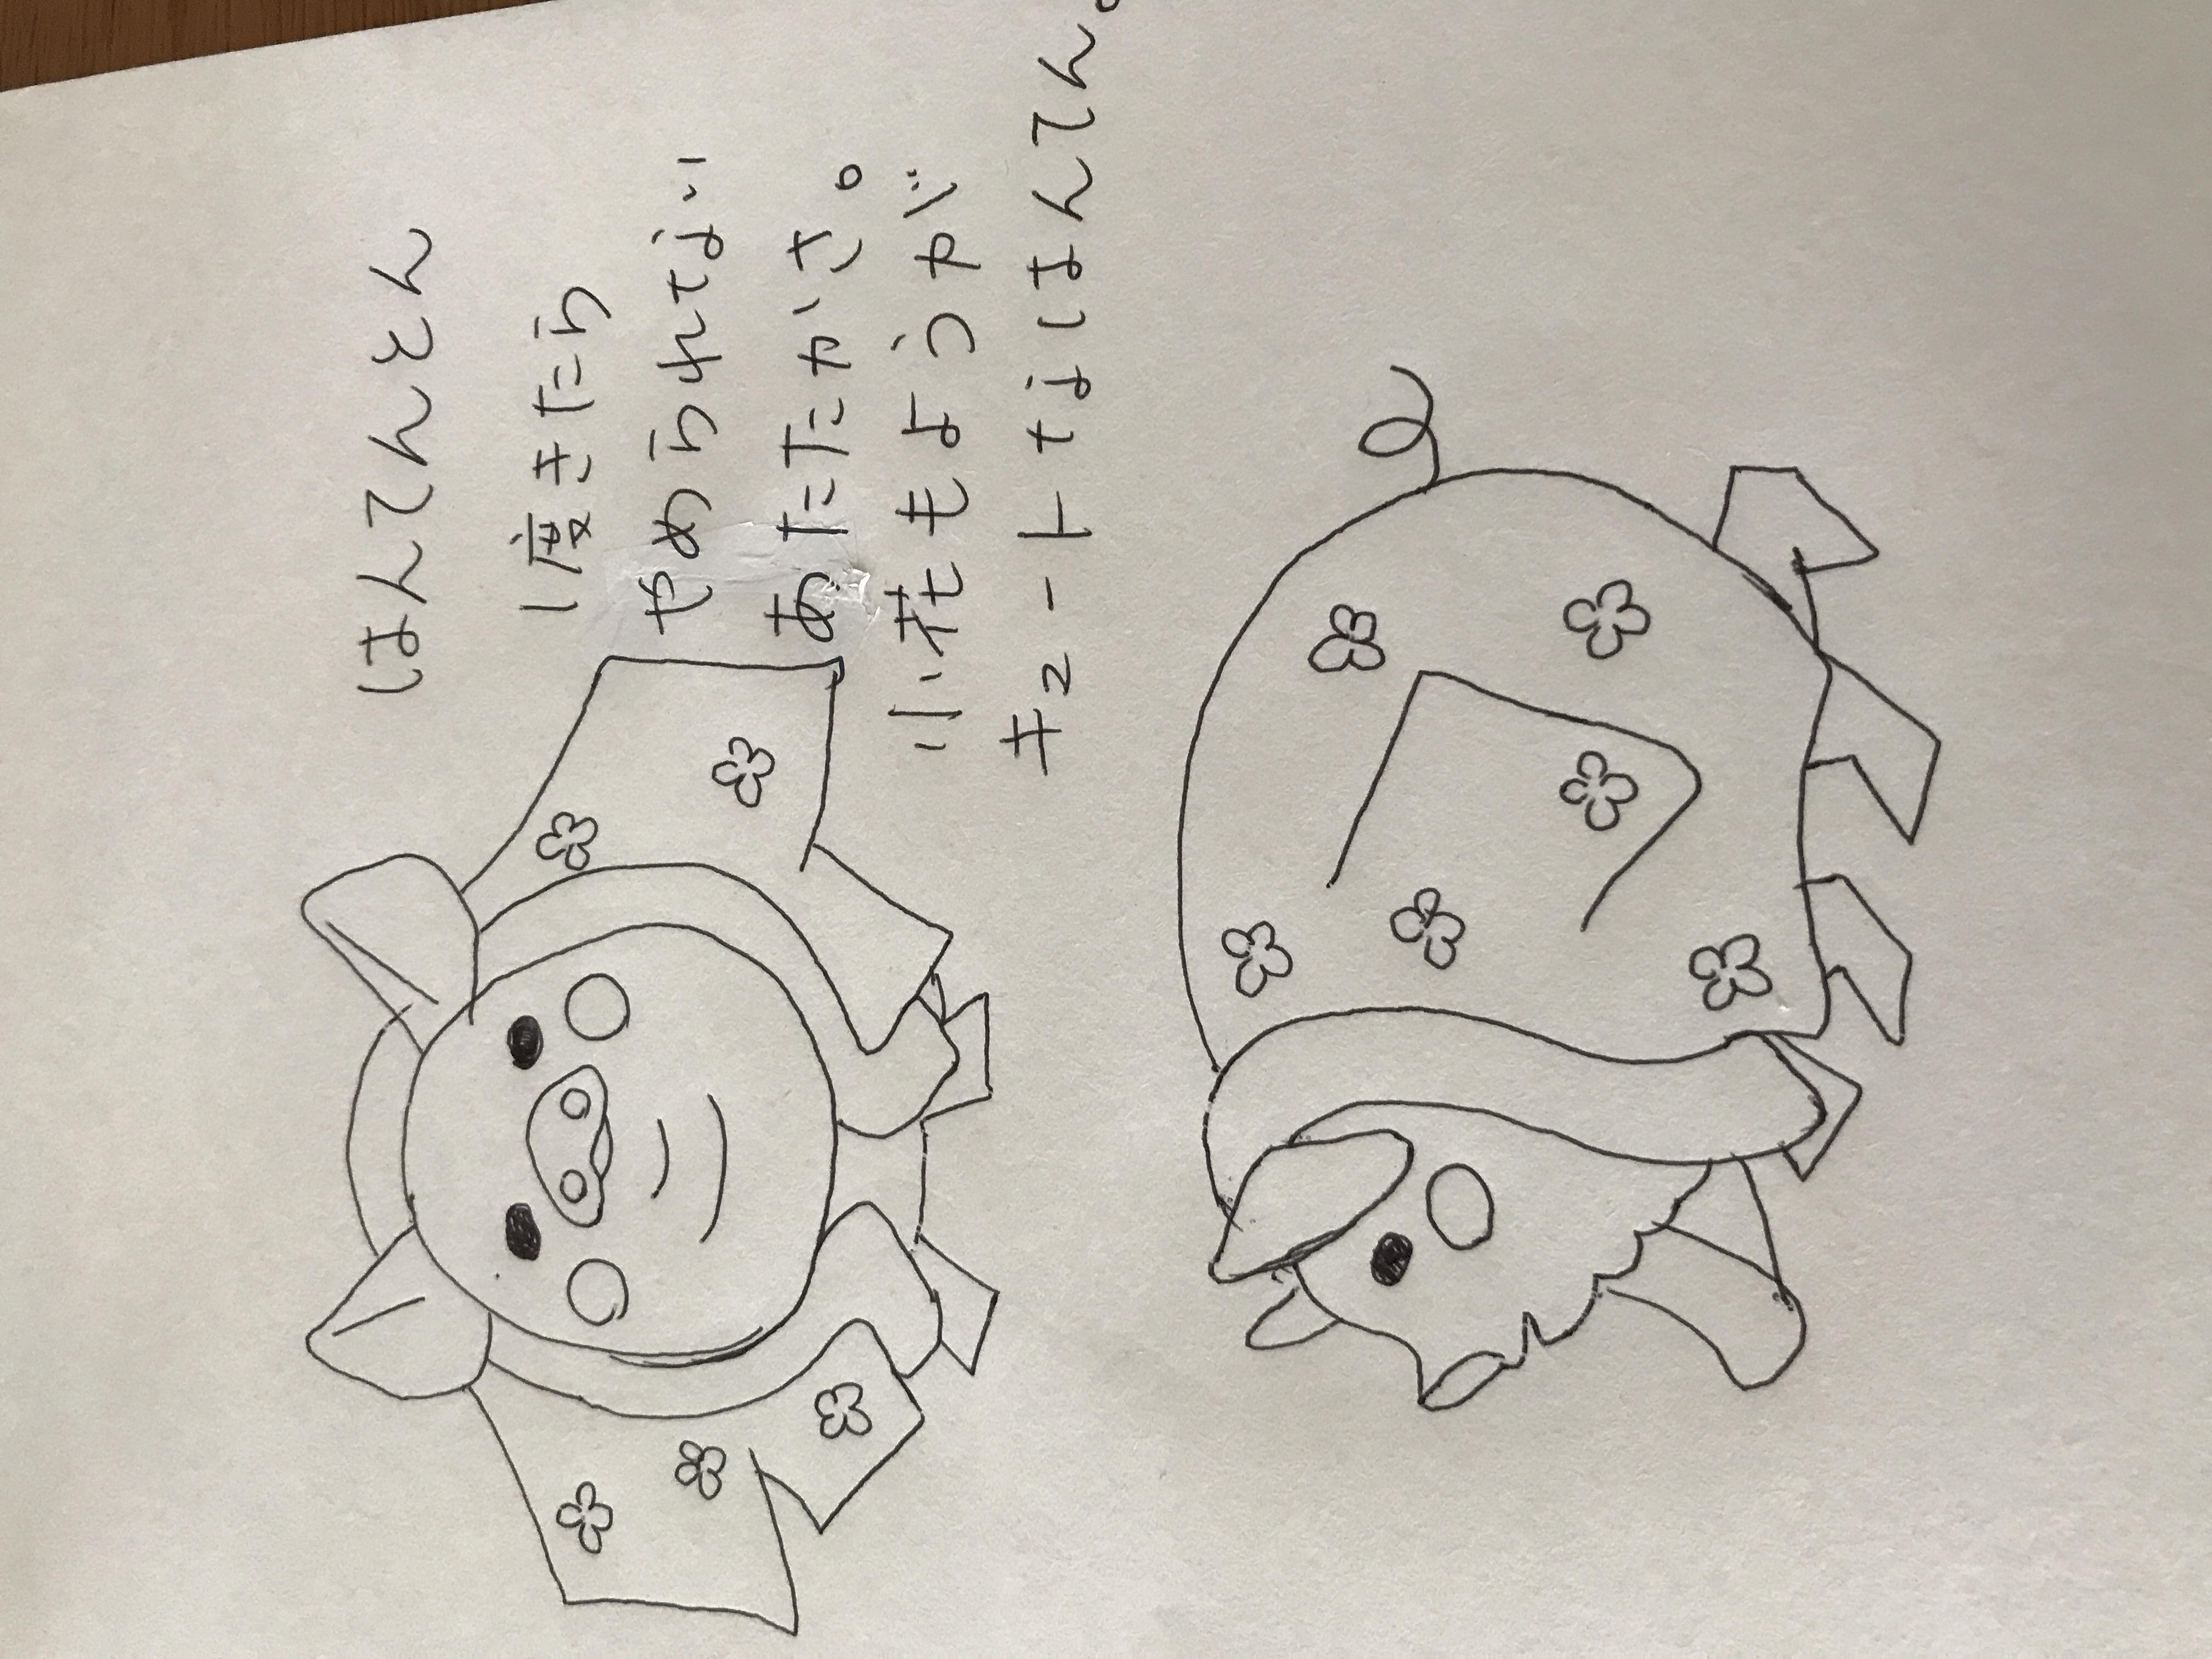 はんてんとん
1度きたら
やめられない
あたたかさ。
小花もようが
キュートなはんてん。